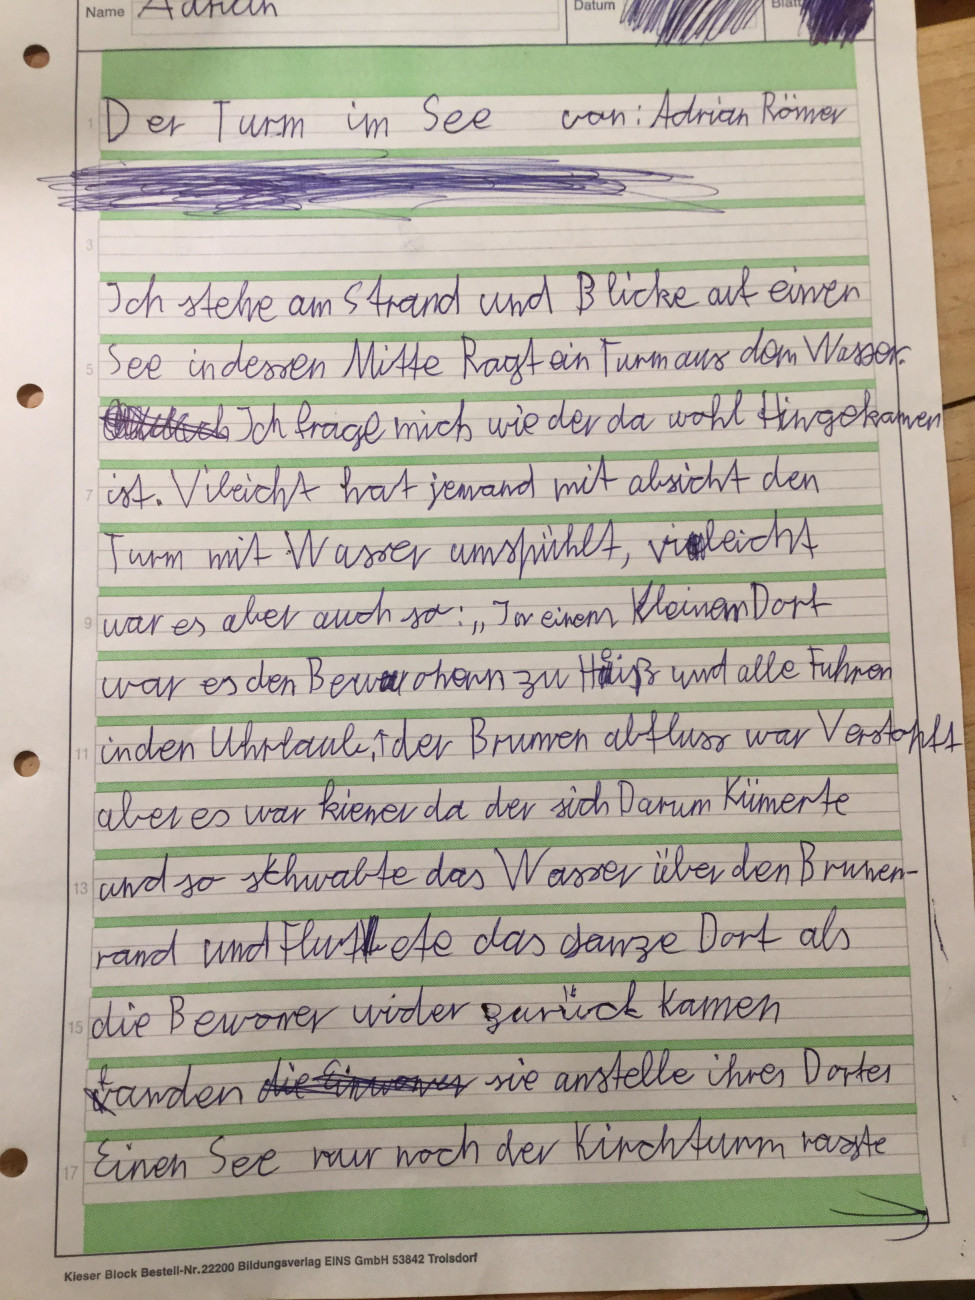 Name Adrian Datum Blatt
1 Der Turm im See von: Adrian Römer
3
Ich stehe am Strand und Blicke auf einen
5 See indessen Mitte Ragt ein Turm aus dem Wasser.
Ich frage mich wie der da wohl Hingekamen
7 ist. Vileicht hat jemand mit absicht den
Turm mit Wasser umspühlt, vieleicht
9 war es aber auch so: „In einem Kleinem Dorf
war es den Bewohern zu Heiß und alle Fuhren
11 inden Uhrlaub, der Brunen abfluss war Verstopft
aber es war kiener da der sich Darum Kümerte
13 und so schwabte das Wasser über den Brunen-
rand und Flutete das ganze Dorf als
15 die Bewoner wider zurück Kamen
fanden sie anstelle ihres Dorfes
17 Einen See nur noch der Kirchturm ragte
Kieser Block Bestell-Nr.22200 Bildungsverlag EINS GmbH 53842 Troisdorf